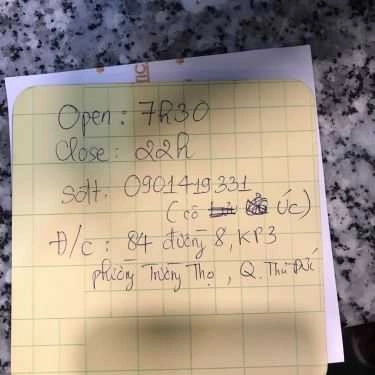 Open: 7h30
Close: 22h
Sđt: 0901419331
(cô Úc)
Đ/c: 84 đường 8, KP3
phường Trường Thọ, Q. Thủ Đức